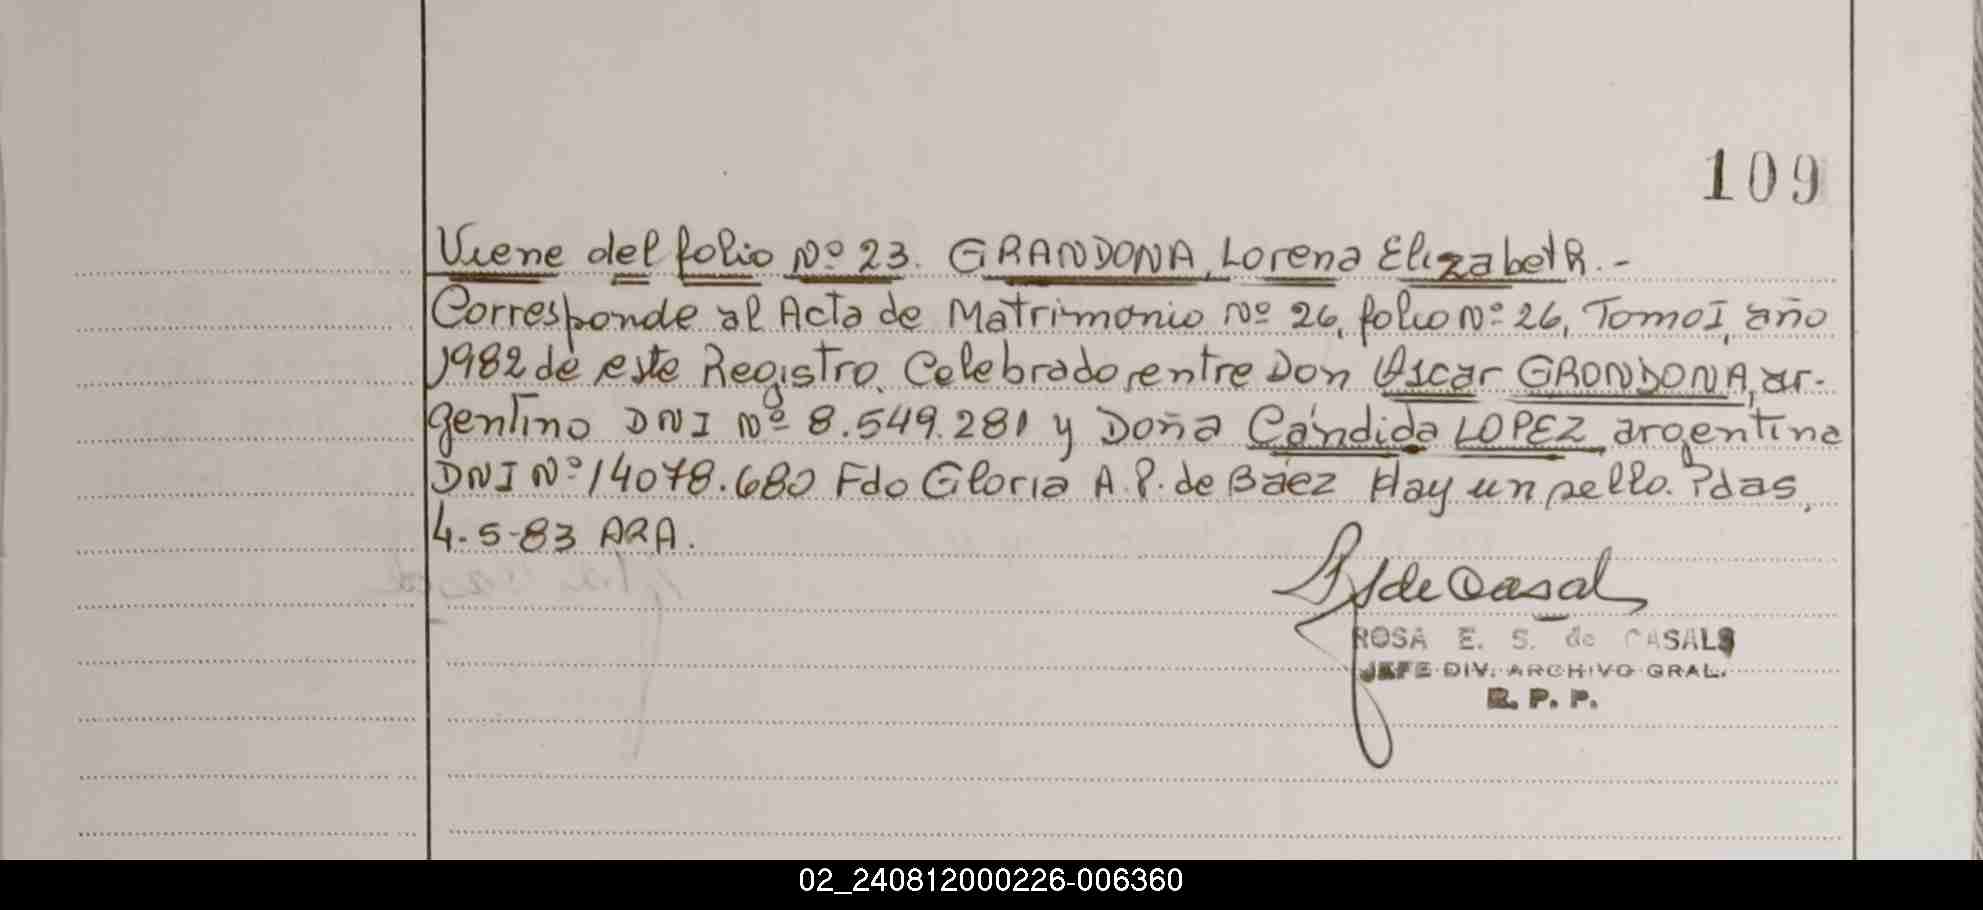 109
Viene del folio Nº 23. GRANDONA, Lorena Elizabeth.-
Corresponde al Acta de Matrimonio Nº 26, folio Nº 26, Tomo I, año
1982 de este Registro, Celebrado entre Don Oscar GRONDONA, ar-
gentino DNI Nº 8.549.281 y Doña Cándida LOPEZ argentina
DNI Nº 14078.680 Fdo Gloria A.P. de Báez Hay un sello. Pdas,
4-5-83 ARA.
de Casal
ROSA E. S. de CASALS
JEFE DIV. ARCHIVO GRAL.
R. P. P.
02_240812000226-006360